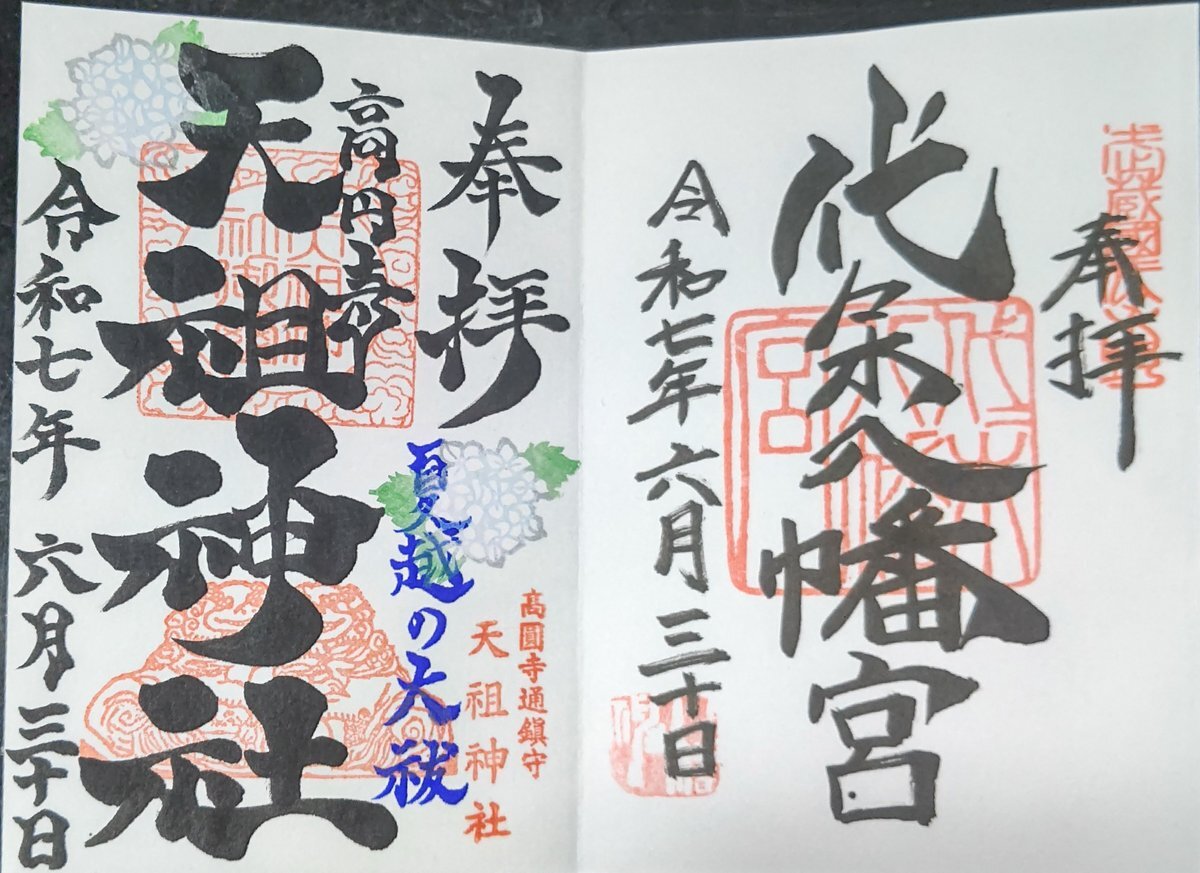 奉拝
代々木八幡宮
令和七年六月三十日
奉拝
夏越の大祓
高圓寺通鎮守
天祖神社
高円寺
天祖神社
令和七年六月三十日